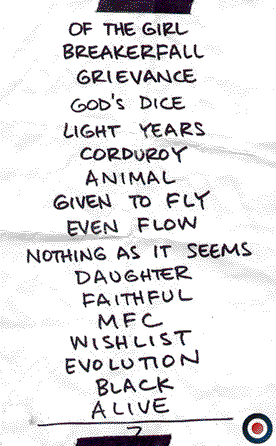 OF THE GIRL
BREAKERFALL
GRIEVANCE
GOD'S DICE
LIGHT YEARS
CORDUROY
ANIMAL
GIVEN TO FLY
EVEN FLOW
NOTHING AS IT SEEMS
DAUGHTER
FAITHFUL
MFC
WISHLIST
EVOLUTION
BLACK
ALIVE